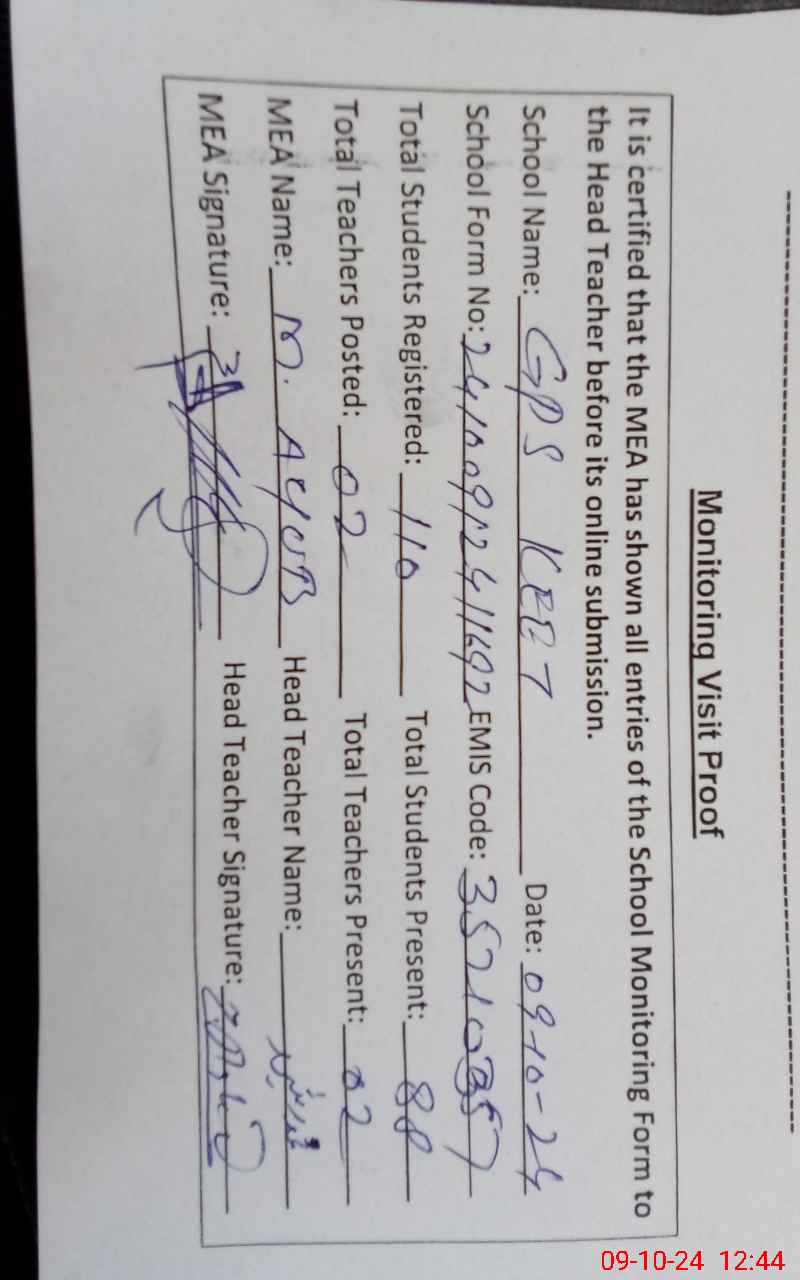 Monitoring Visit Proof
It is certified that the MEA has shown all entries of the School Monitoring Form to
the Head Teacher before its online submission.
School Name: GPS Date: 09-10-24
School Form No: EMIS Code:
Total Students Registered: 110 Total Students Present: 88
Total Teachers Posted: 02 Total Teachers Present: 02
MEA Name: M. AYUB Head Teacher Name:
MEA Signature: Head Teacher Signature:
09-10-24 12:44